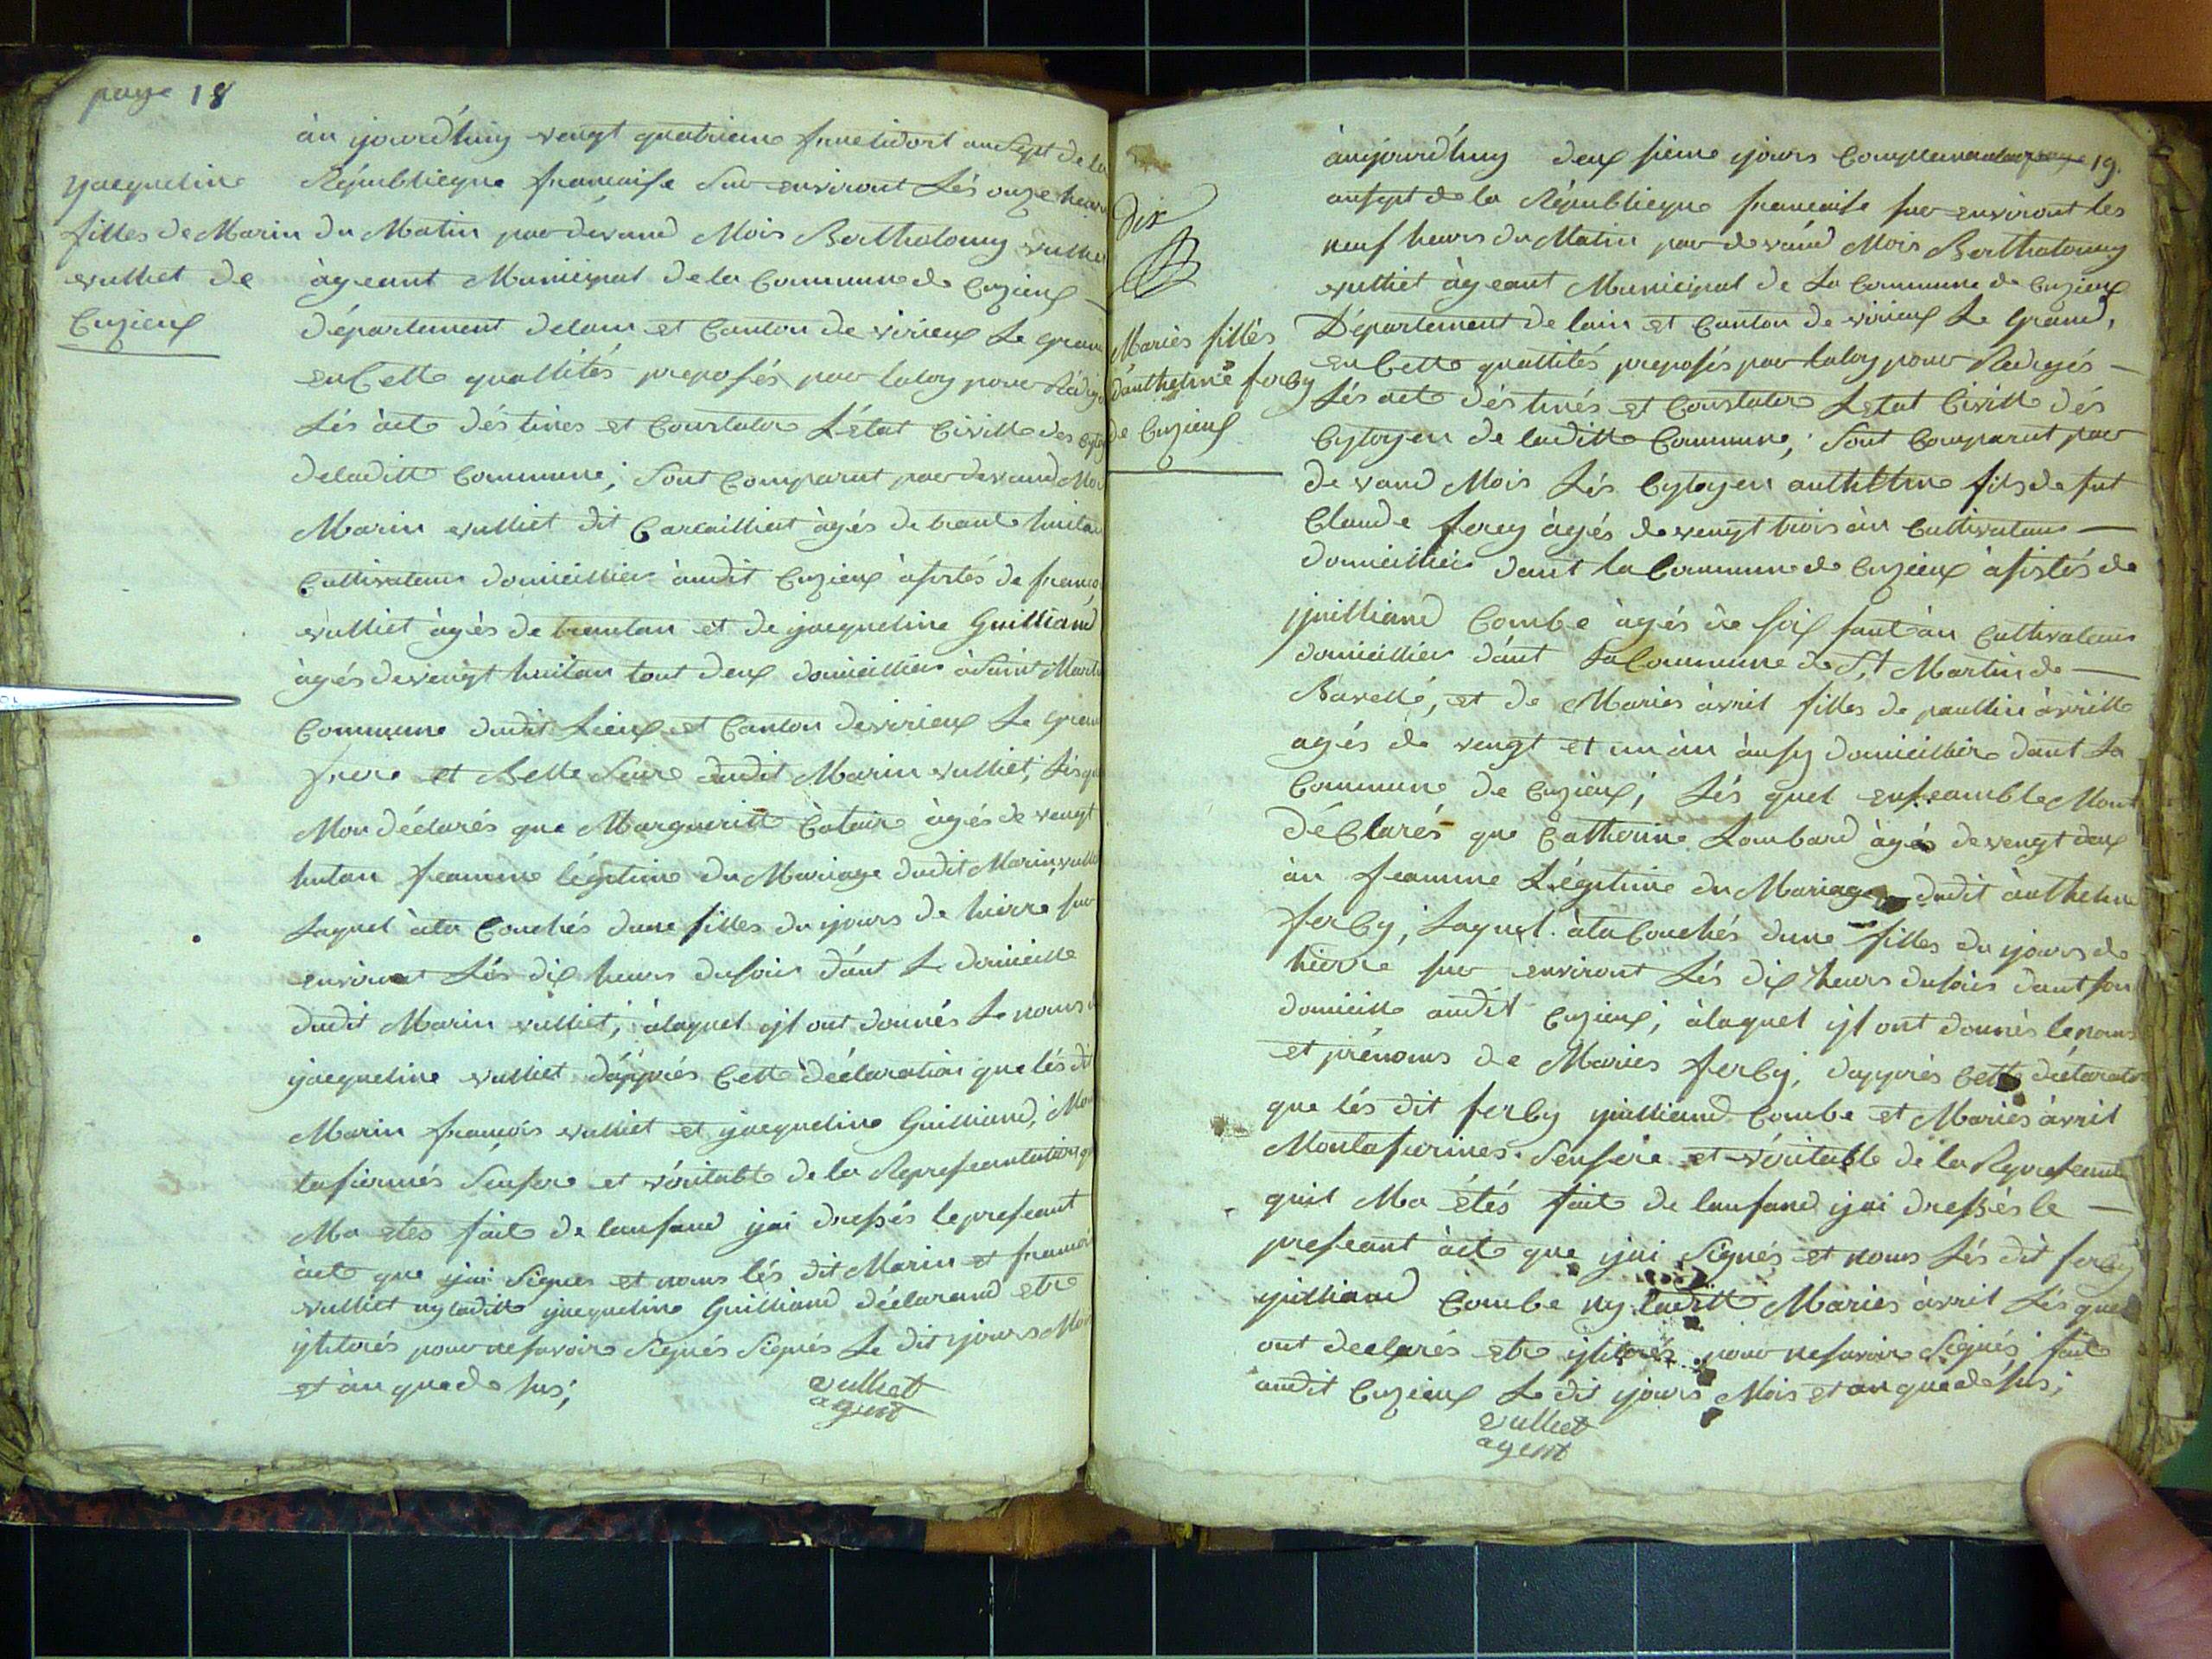 page 18
yacqueline
filles de Marin
vulliet de
Cuzieux
àu yjourd'huy vengt quatrieme frucltidort an Sept de la
Républicque francaise Sur environt Lés onze heurs
du Matin par devand Mois Bertholomy vulliet
àgeant Municipal de la Commune de Cuzieux
département delain et Canton de virieux Le grand
en Cette quallités preposés par laloy pour Rédigé
Lés acte déstinés et Constater L'état Civille des
deladitte Commune; Sont Comparut par devand Mois
Marin vulliet dit Carcailliat àgés de trante huitan
Cultivateur domicillier àudit Cuzieux àsistés de francois
vulliet àgés de trantan et de yjacqueline Guilliand
àgés de vengt huitan tout deux domicillier àSaint Martin
Commune dudit Lieux et Canton de virieux Le grand
frere et Belle Seure dudit Marin vulliet, Lésquel
Mon déclarés que Margueritte Cataire àgés de vengt
huitan feamme légitime du Mariage dudit Marin vulliet
Laquel àta Couchés dune filles du yjours de hierre sur
environt Lés dix heurs dusoir dant Le domicille
dudit Marin vulliet, àlaquel yl ont donnés Le noms
yjacqueline vulliet d'apprés Cette déclaration que lés dit
Marin francois vulliet et yjacqueline Guilliand, Mon
tafiermés Sensere et véritable de la Represeantation
Ma etes faite de lansand yjai dressés lepreseant
àcte que yjai Signés et nom lés dit Marin et francois
vulliet ny laditte yjacqueline Guilliand déclarand etre
yliterés pour ne savoir Signés Signés Le dit yjours Mois
et àn que de sus;
vulliet
agent
19.
dix
Mariés filles
d'anthelme ferby
de Cuzieux
àujourd'huy deuxsieme yjours Complemantaire
ansept de la Républicque francaise sur environt les
neuf heurs du Matin par de vand Mois Bertholomy
vulliet àgeant Municipal de La Commune de Cuzieux
Département de lain et Canton de virieux Le grand,
en Cette quallités preposés par laloy pour Redigés
Lés acte déstinés et Constater Létat Civille dés
Cytoyen de laditte Commune; Sont Comparut par
de vand Mois Lés Cytoyen anthelme fils de fut
Claude ferby àgés de vengt trois àn Cultivateur
domicilliér dant la Commune de Cuzieux àsistés de
yjuilliand Combe àgés de soixsant àn Cultivateur
domicillier dant La Commune de St Martin de
Bavelle, et de Mariés àvril filles de paullin àvrille
agés de vengt et un àn àusy domicilliére dant La
Commune de Cuzieux; Lés quel enseamble Mont
déClarés que Catherine Lombard àgés de vengt deux
àn feamme Légitime du Mariage dudit ànthelme
ferby; Laquel àta Couchés dune filles du yjours de
hierre sur environt Lés dix heurs dusoir dant son
domicille audit Cuzieux; àlaquel yl ont donnés le noms
et prénoms de Mariés ferby, d'apprés Cette déclaration
que lés dit ferby yjuilliand Combe et Mariés àvril
Montafiermes Sensére et véritable de la Represeante
quil Ma étés faite de lansand yjai dressés le
preseant àcte que yjai Signés et noms Lés dit ferby
yjuilliand Combe ny laditte Mariés àvril Lésquel
ont declarés etre yliterés pour ne savoir Signés faite
audit Cuzieux Le dit yjours Mois et an que dé sus;
vulliet
agent